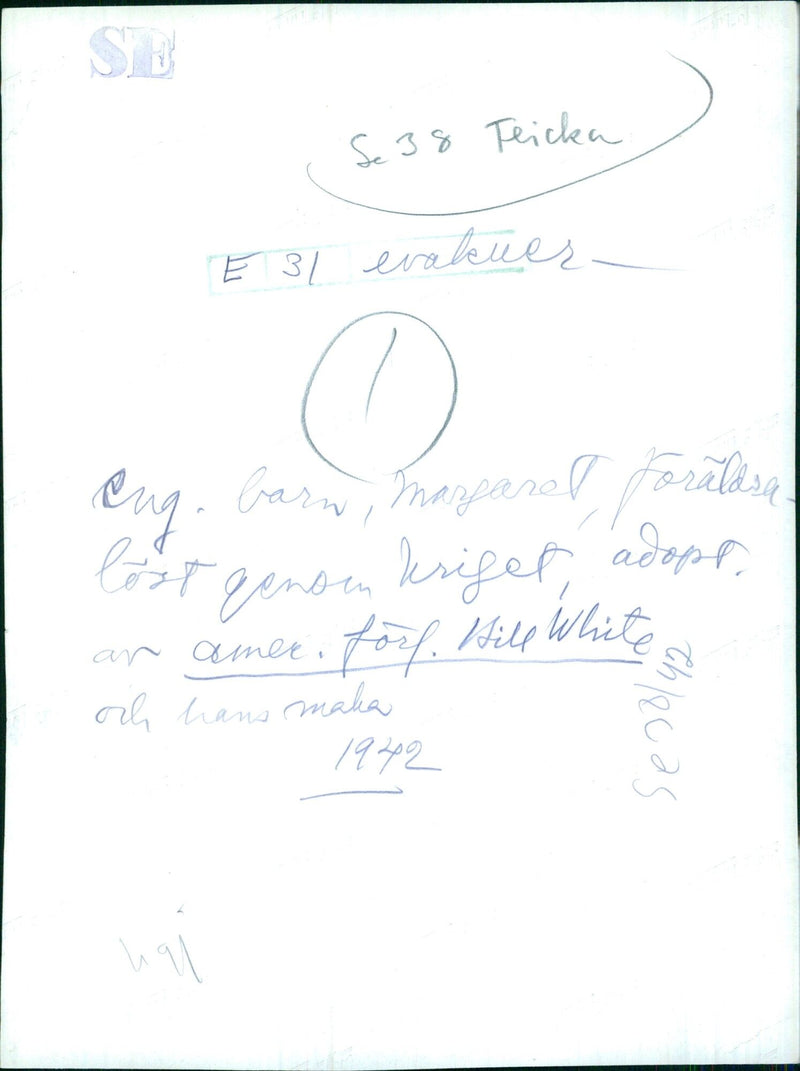 SE
Se 38 Teicka
E 31 evakuer
1
eng. barn, Margaret, föräldra-
löst genom kriget, adopt.
av amer. förf. Bill White
och hans maka
1942
SE 38/42